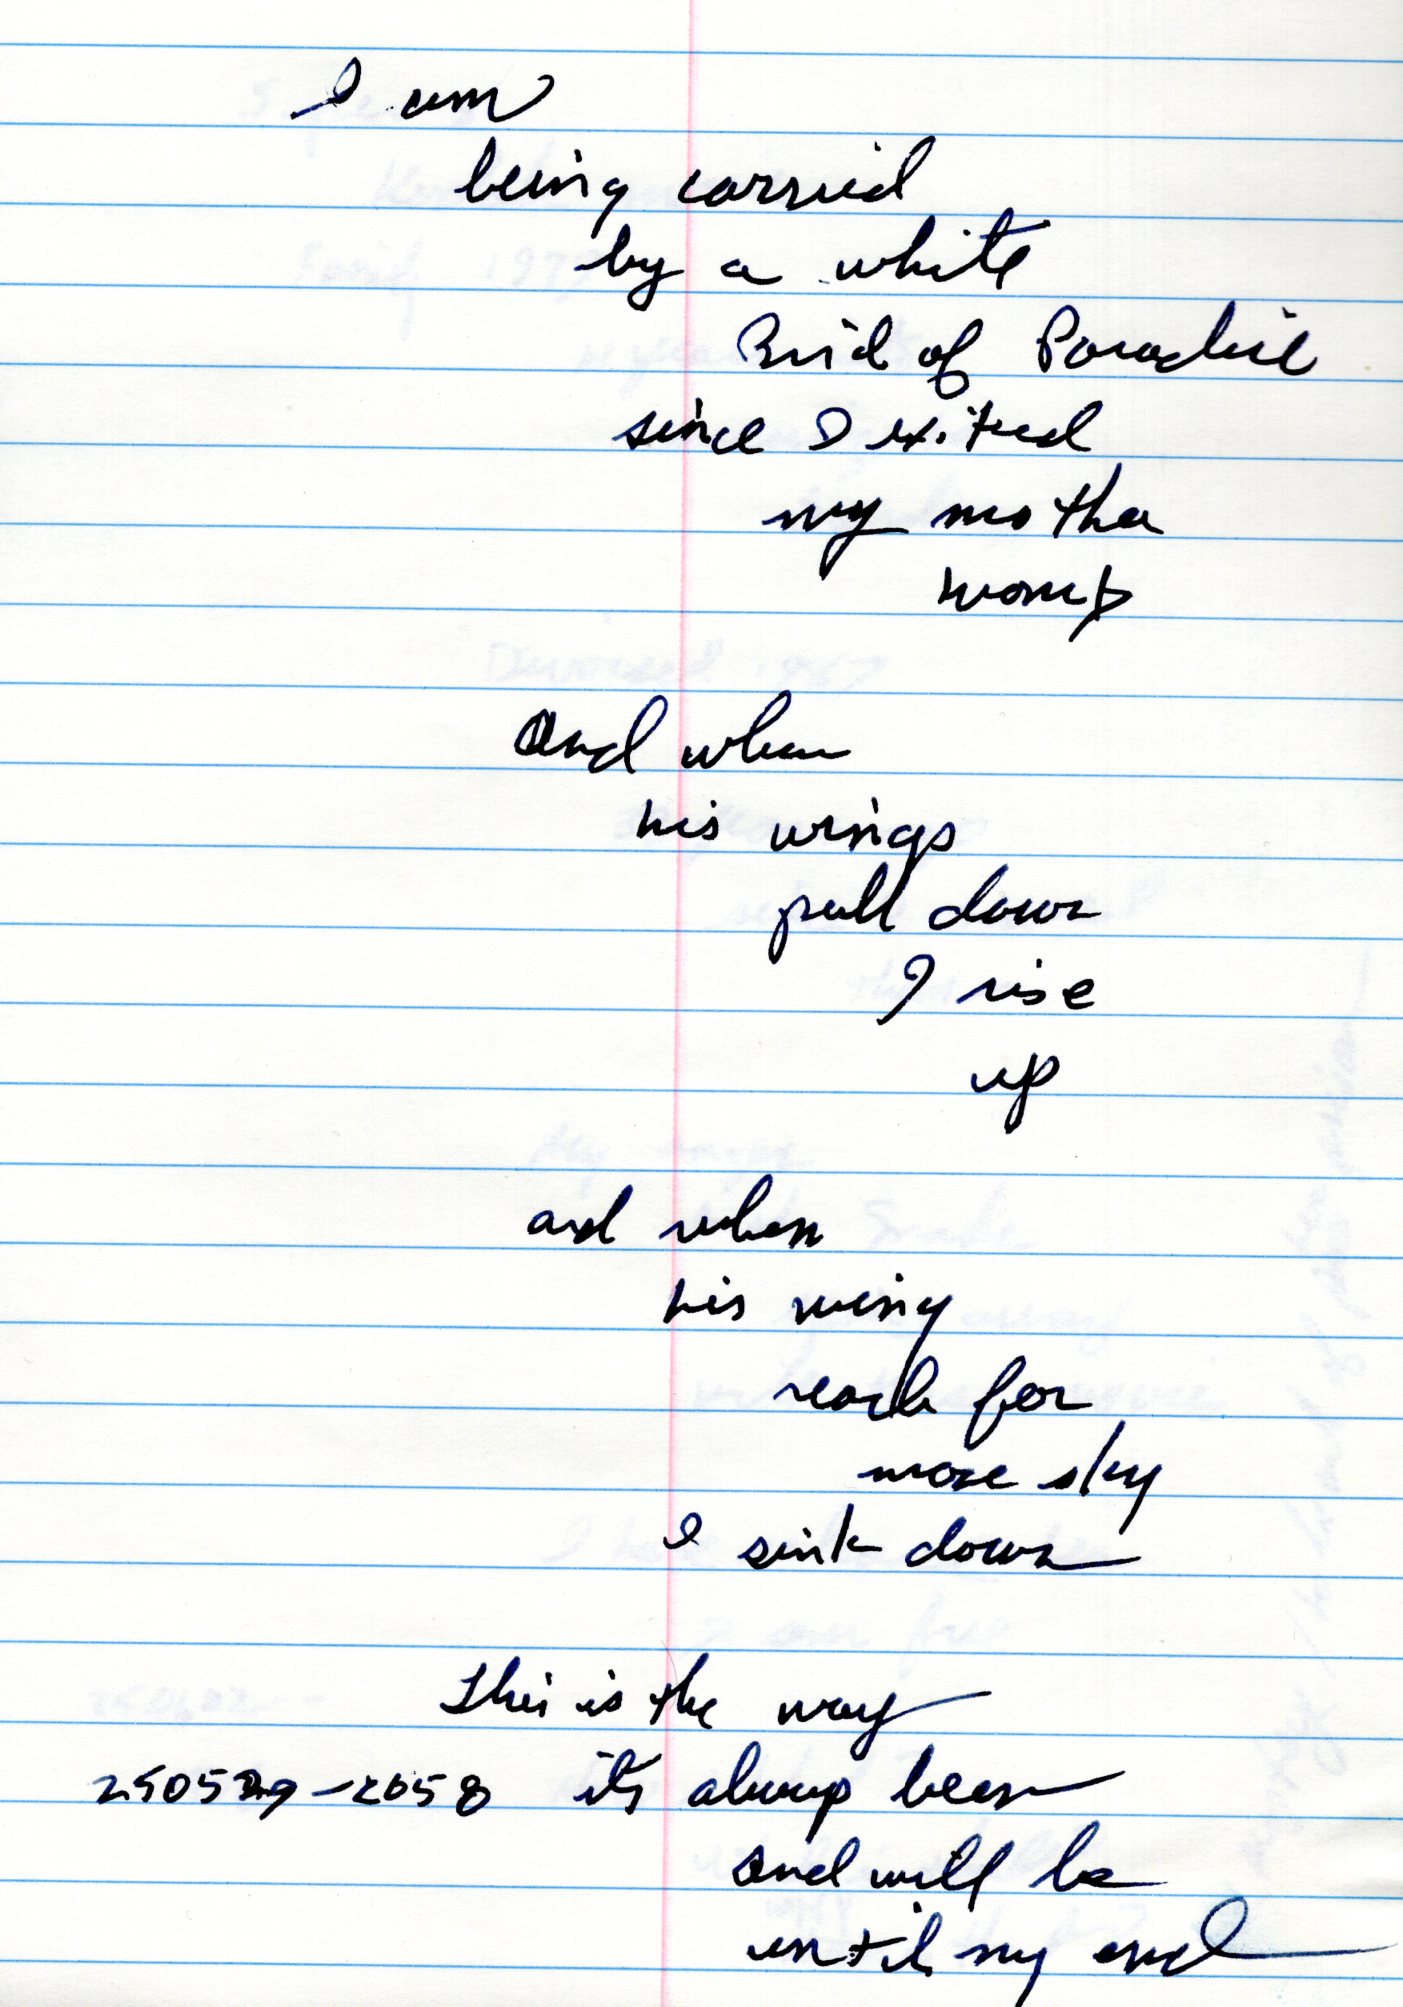 I am
being carried
by a white
Bird of Paradise
since I exited
my mother
womb
And when
his wings
pull down
I rise
up
and when
his wings
reach for
more sky
I sink down
This is the way
250529-2058 it's always been
and will be
until my end